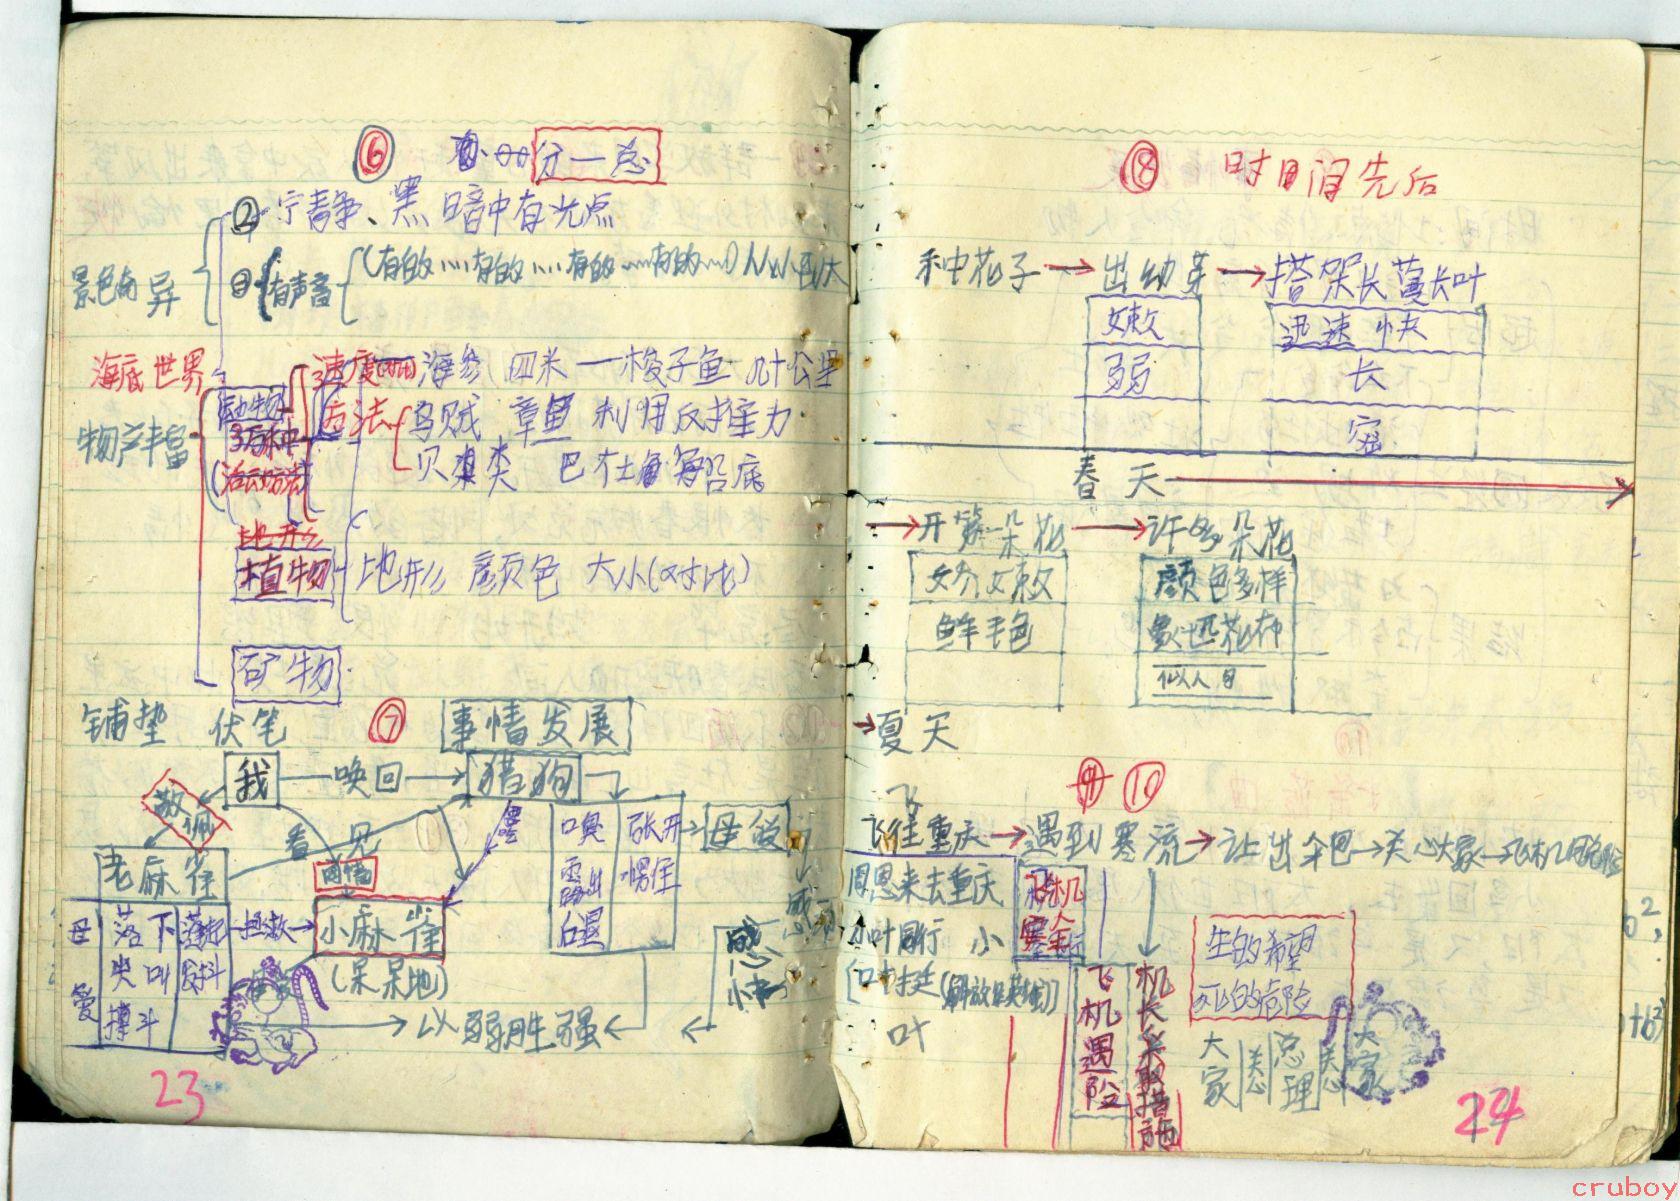 ⑥ 分—总
② 宁静、黑暗中有光点
景色奇异
③ 有声音 (有的……有的……有的……有的……) 从小到大
海底世界
速度 海参 四米 — 梭子鱼 几十公里
动物 3万种 (活动方法)
方法 乌贼 章鱼 利用反推力
物产丰富
贝类 巴在 船底
植物 颜色 大小(对比)
矿物
铺垫 伏笔 ⑦ 事情发展
我 唤回 猎狗
敬佩 看见
嗅 露出 后退
张开 愣住
母爱
老麻雀
母爱 落下 尖叫 搏斗
拯救 小麻雀
(呆呆地)
以弱胜强
23
⑧ 时间先后
种花子 → 出幼芽 → 搭架长蔓长叶
嫩 迅速 快
弱 长
密
春天
开第一朵花 → 许多朵花
娇嫩 颜色多样
鲜 色 象一匹花布
似人
→ 夏天
⑨ ⑩
飞往重庆 → 遇到寒流 → 让出伞包 → 关心大家
周恩来去重庆
小叶同行 小
叶
飞机遇险
机长采取措施
生的希望
死的危险
大家 关心 总理 关心 大家
24
cruboy